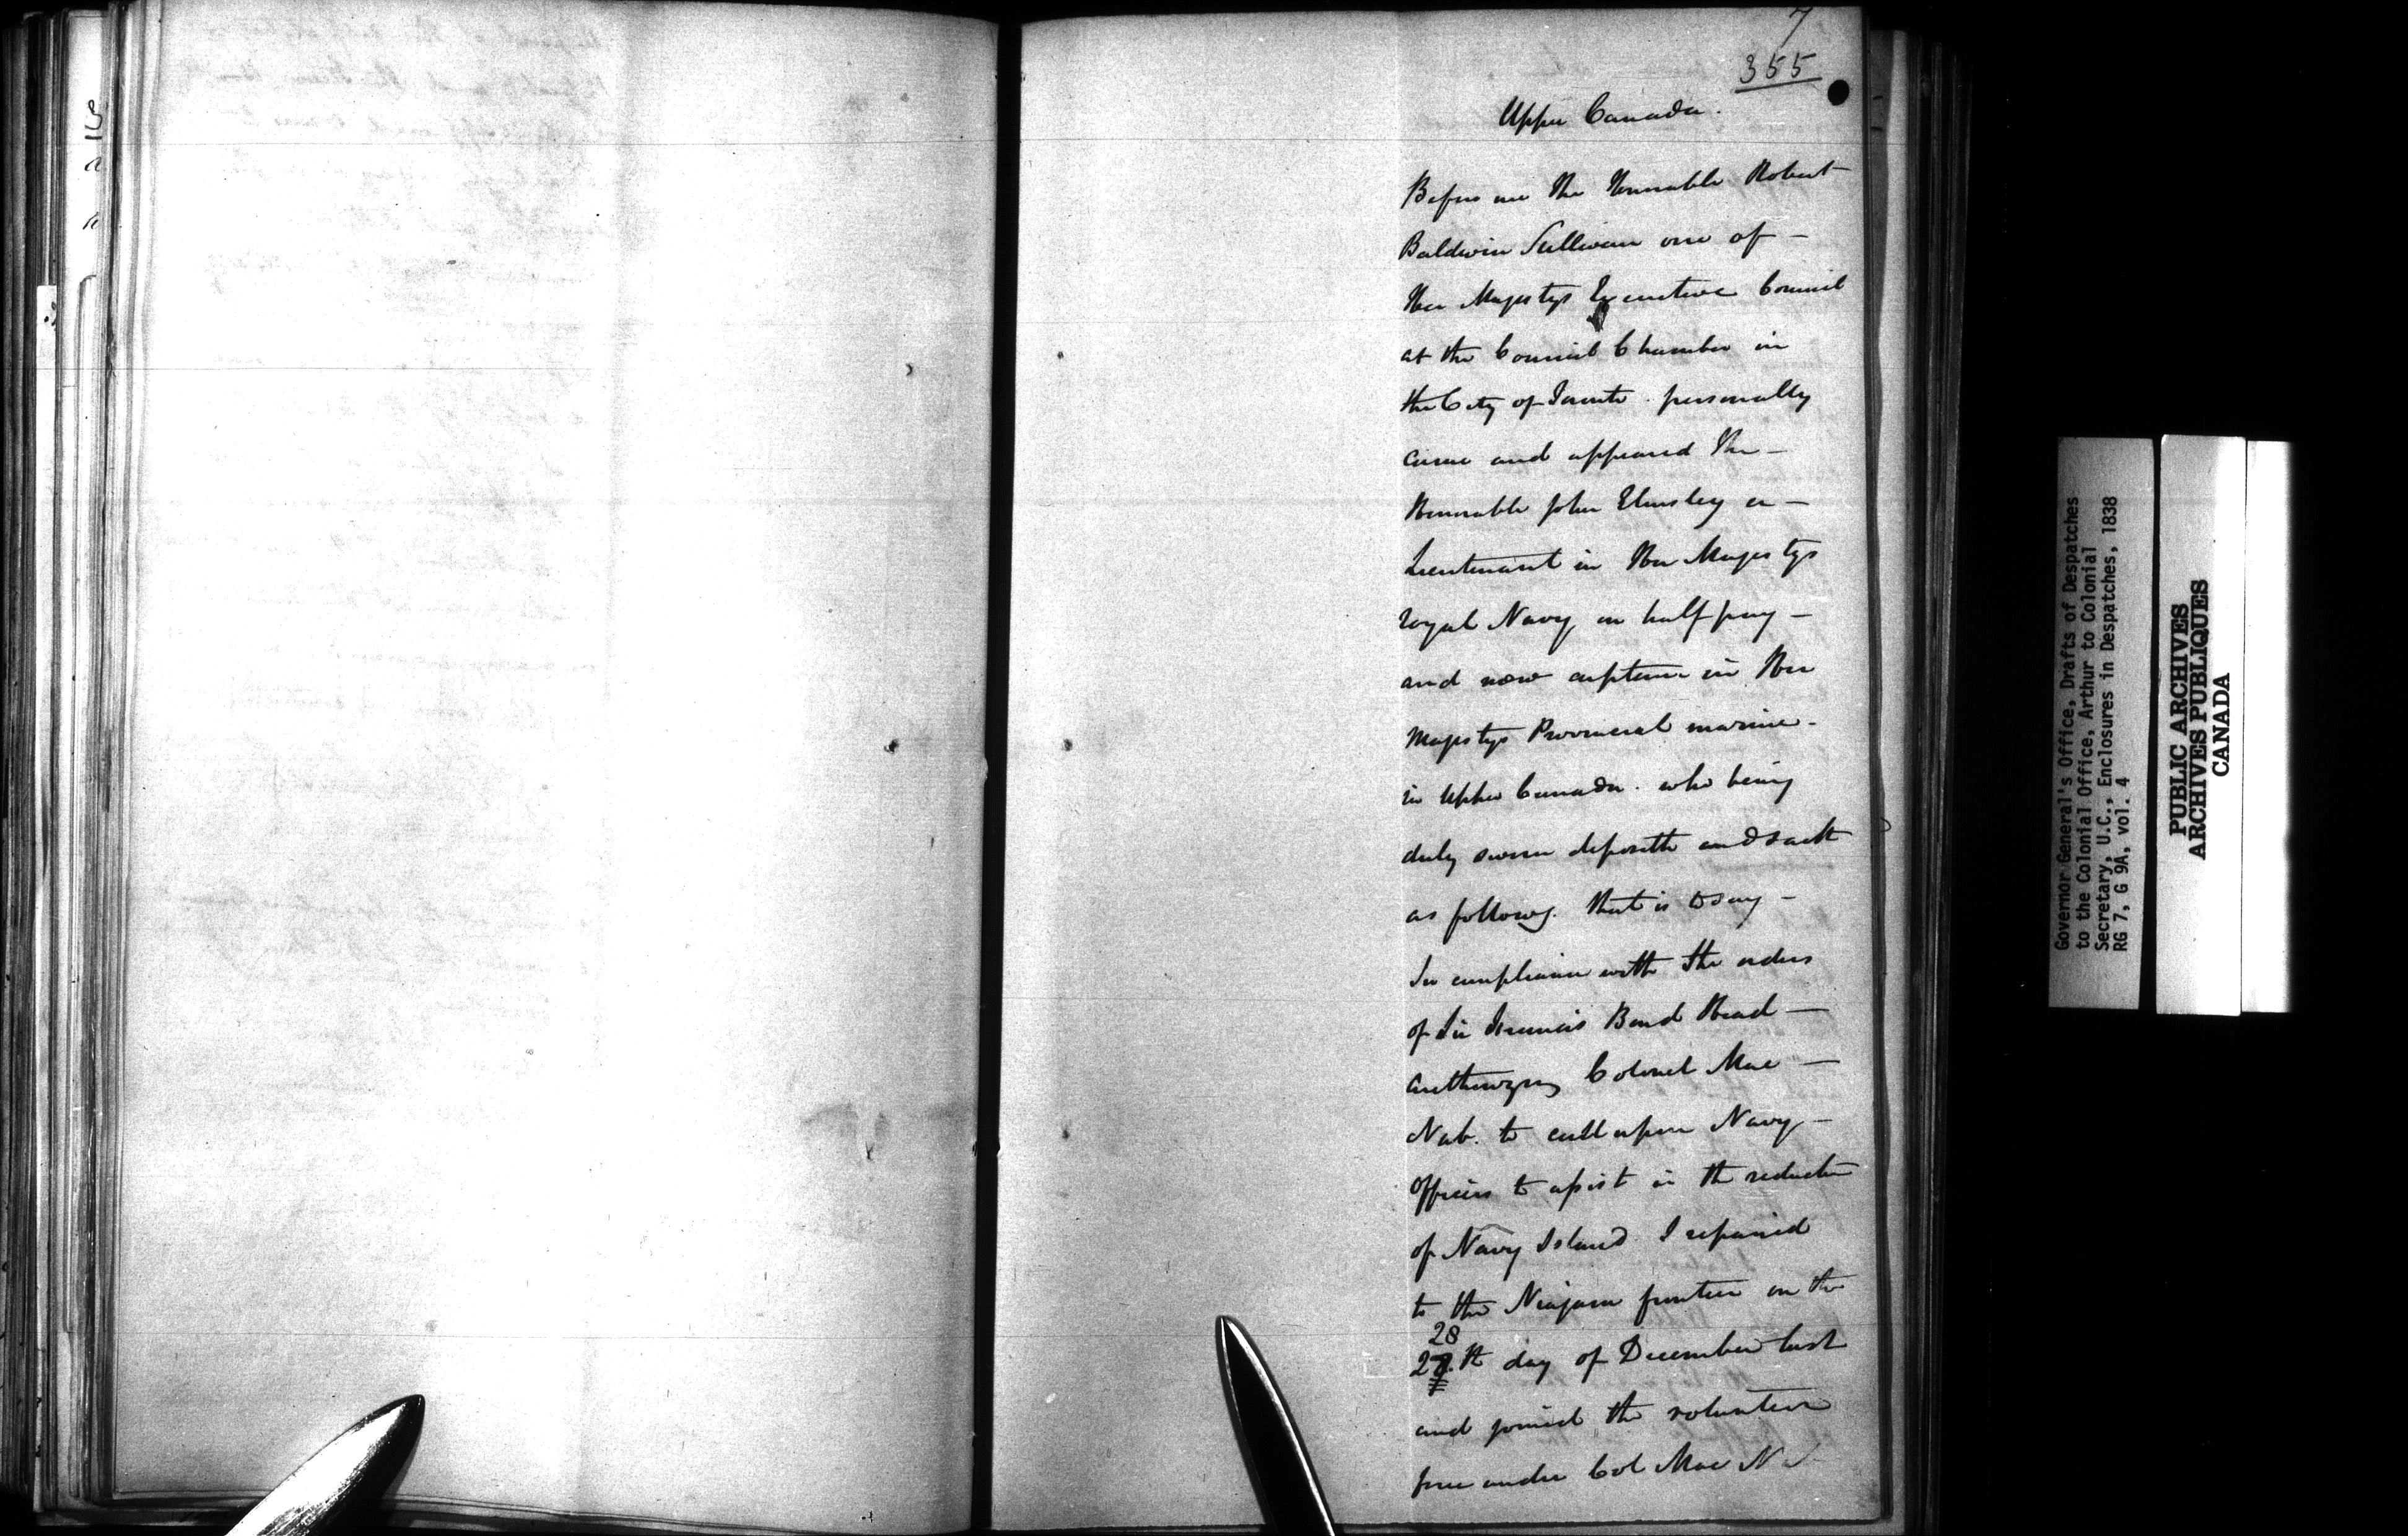 7
355
Upper Canada.
Before me the Honorable Robert
Baldwin Sullivan one of —
Her Majestys Executive Council
at the Council Chamber in
the City of Toronto. personally
came and appeared the —
Honorable John Elmsley a —
Lieutenant in Her Majestys
royal Navy on half pay —
and now captain in Her
Majestys Provincial marine.
in Upper Canada. who being
duly sworn deposeth and saith
as follows. that is to say —
In compliance with the orders
of Sir Francis Bond Head —
authorizing Colonel Mac —
Nab. to call upon Navy —
Officers to assist in the reduction
of Navy Island I repaired
to the Niagara frontier on the
28
27.th day of December last
and joined the volunteer
force under Col Mac N
Governor General's Office, Drafts of Despatches
to the Colonial Office, Arthur to Colonial
Secretary, U.C., Enclosures in Despatches, 1838
RG 7, G 9A, vol. 4
PUBLIC ARCHIVES
ARCHIVES PUBLIQUES
CANADA